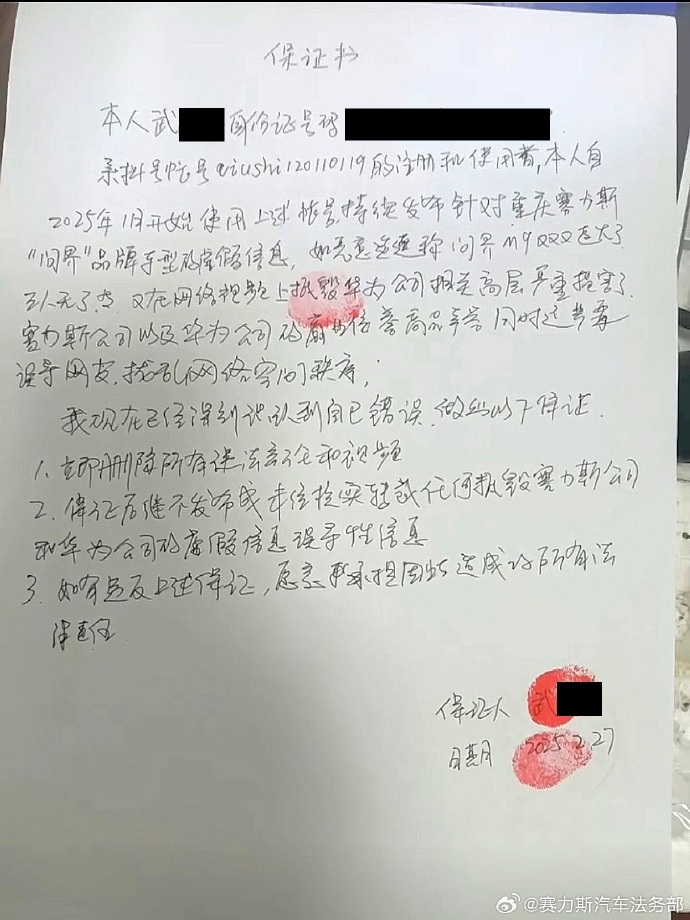 保证书
本人武 身份证号码
系抖音帐号qiushi120110119的注册和使用者,本人自
2025年1月开始使用上述帐号,持续发布针对重庆赛力斯
"问界"品牌车型的虚假信息, 如恶意造谣称问界M9 起火了
又在网络视频上抵毁华为公司相关高层严重损害了
赛力斯公司以及华为公司的商品信誉商品声誉同时还
误导网友,扰乱网络空间秩序;
我现在已经深刻认识到自己错误,做出以下保证.
1. 立即删除所有违法言论和视频
2. 保证后继不发布或未经核实转载任何抵毁赛力斯公司
和华为公司的虚假信息误导性信息
3. 如有违反上述保证,愿意承担因此造成的所有法
律责任
保证人 武
日期 2025.2.27
@赛力斯汽车法务部